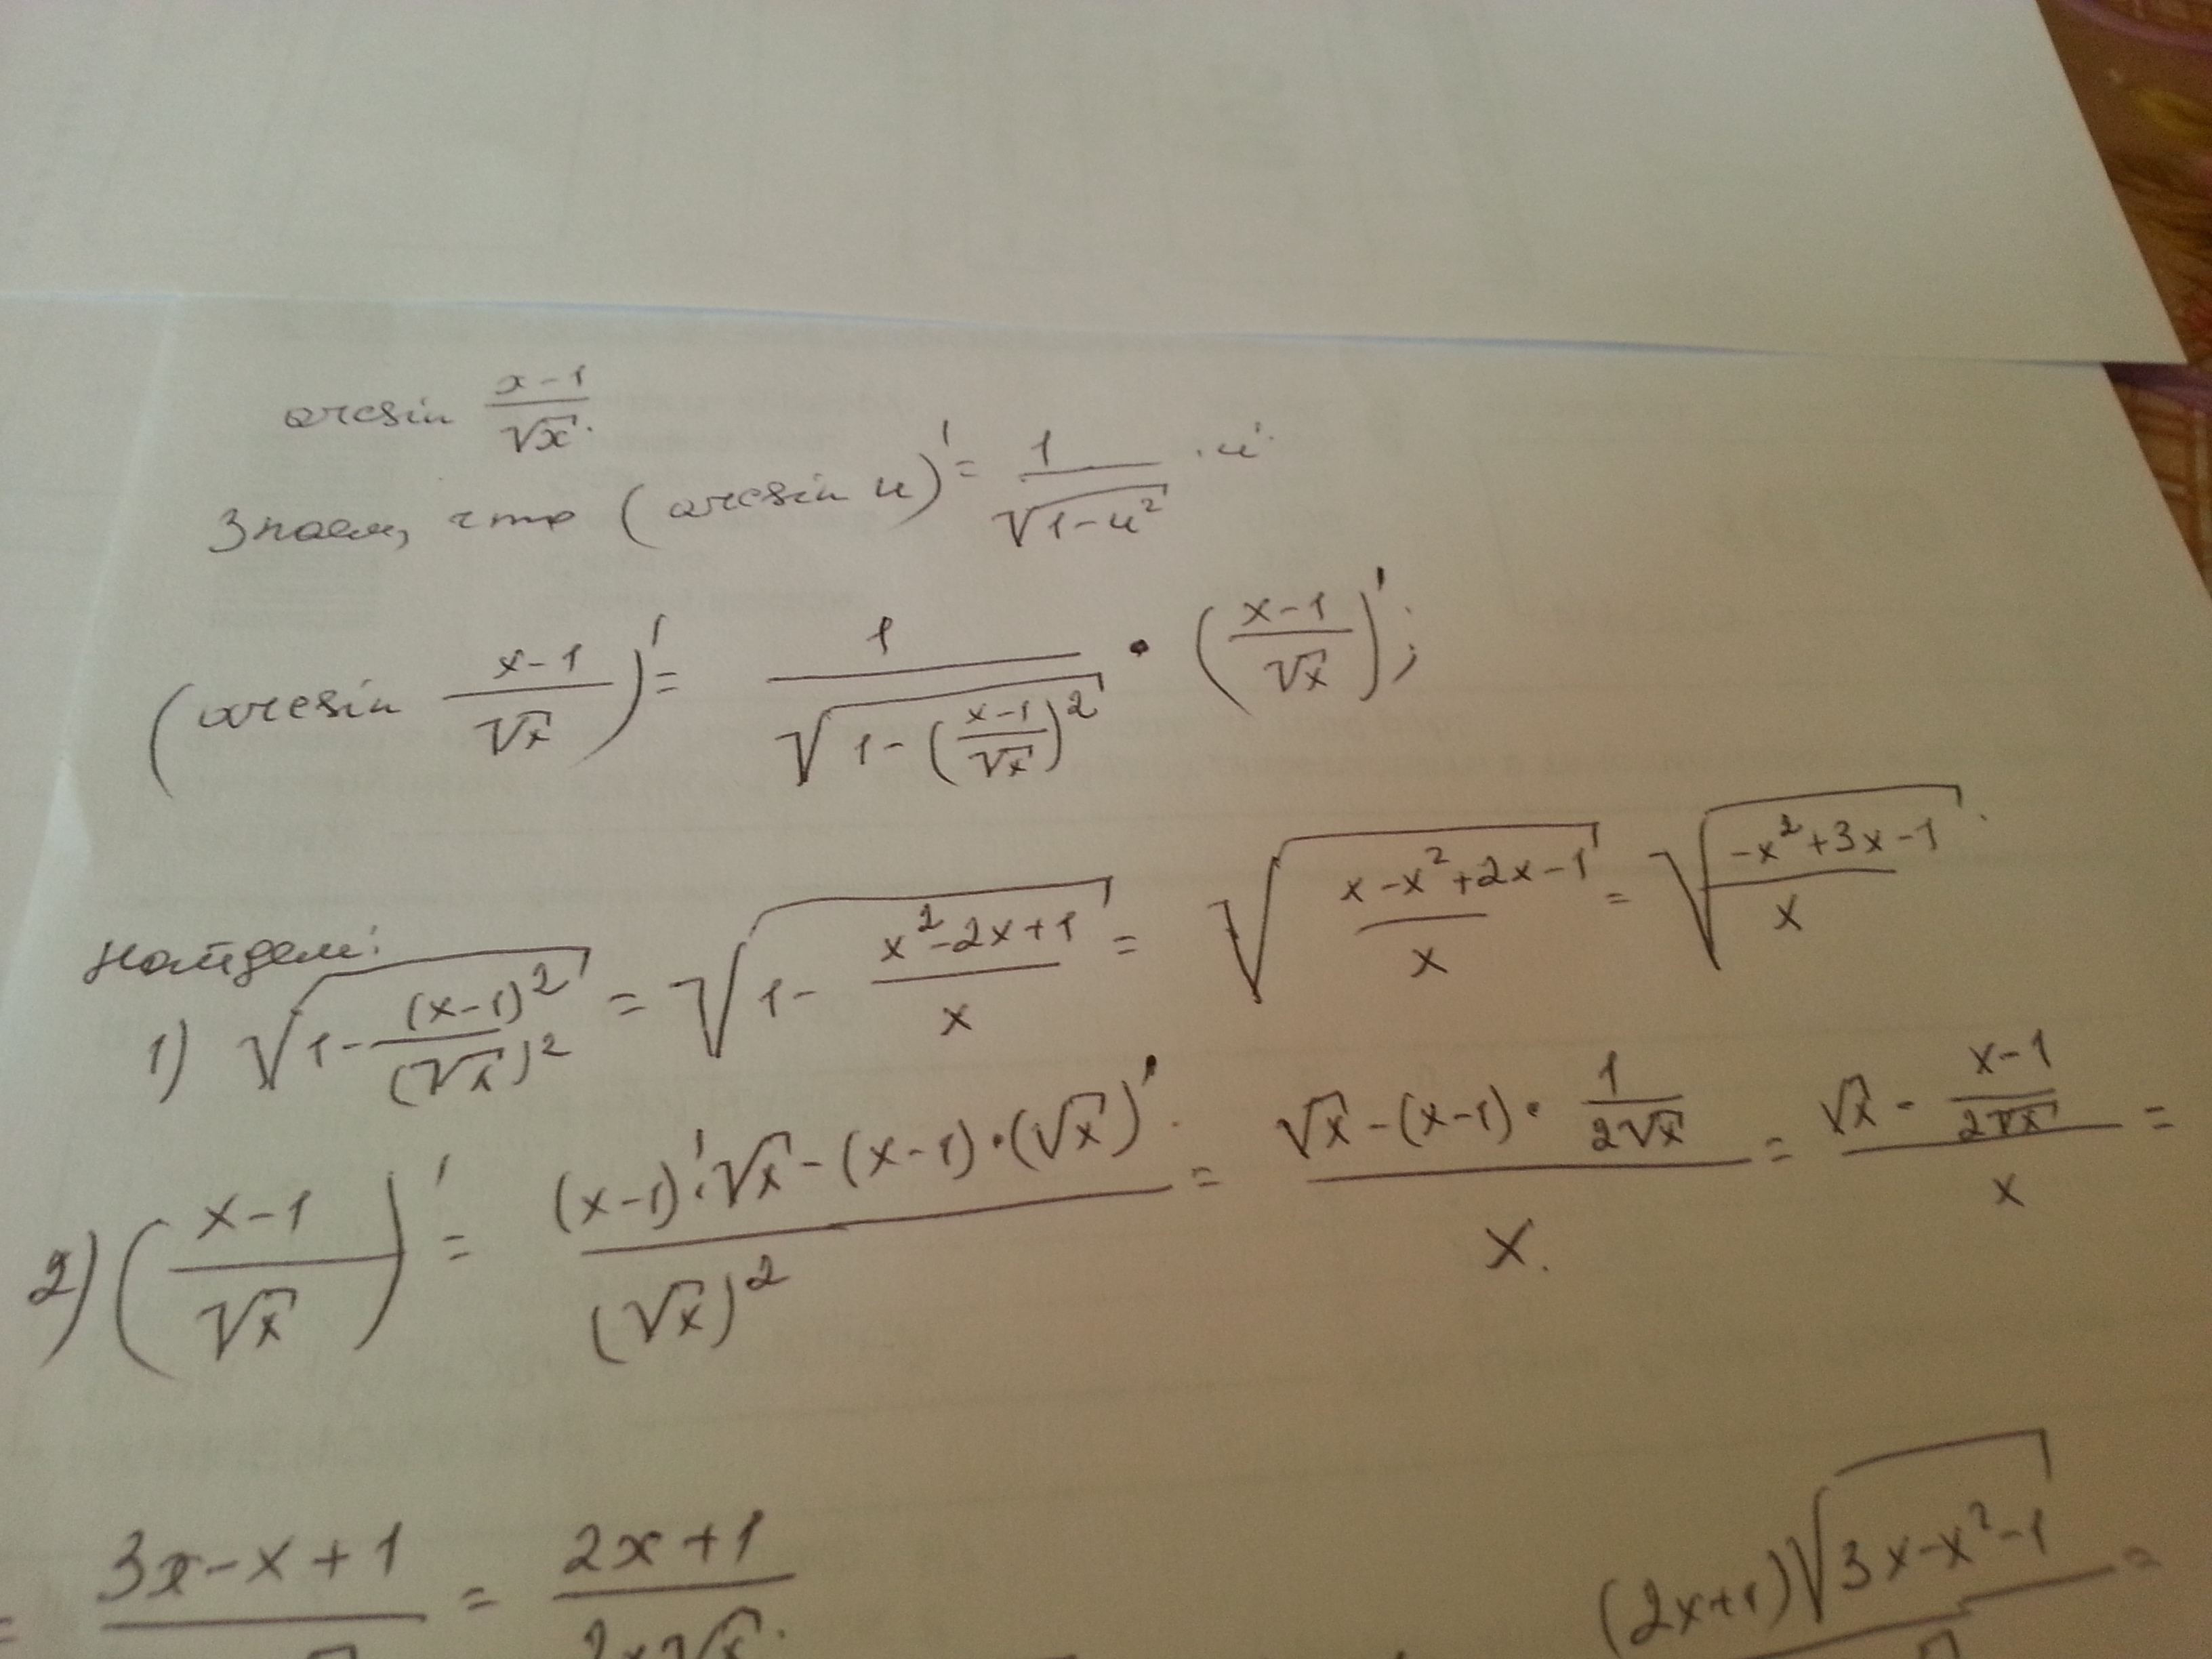 arcsin (x-1)/√x.
Знаем, что (arcsin u)' = 1/√(1-u²) · u'.
(arcsin (x-1)/√x)' = 1/√(1-((x-1)/√x)²) · ((x-1)/√x)';
Найдем:
1) √(1-(x-1)²/(√x)²) = √(1-(x²-2x+1)/x) = √((x-x²+2x-1)/x) = √((-x²+3x-1)/x).
2) ((x-1)/√x)' = ((x-1)'·√x-(x-1)·(√x)')/(√x)² = (√x-(x-1)·1/(2√x))/x. = (√x-(x-1)/(2√x))/x =
= (3x-x+1)/ = (2x+1)/(2x√x). (2x+1)√(3x-x²-1) =